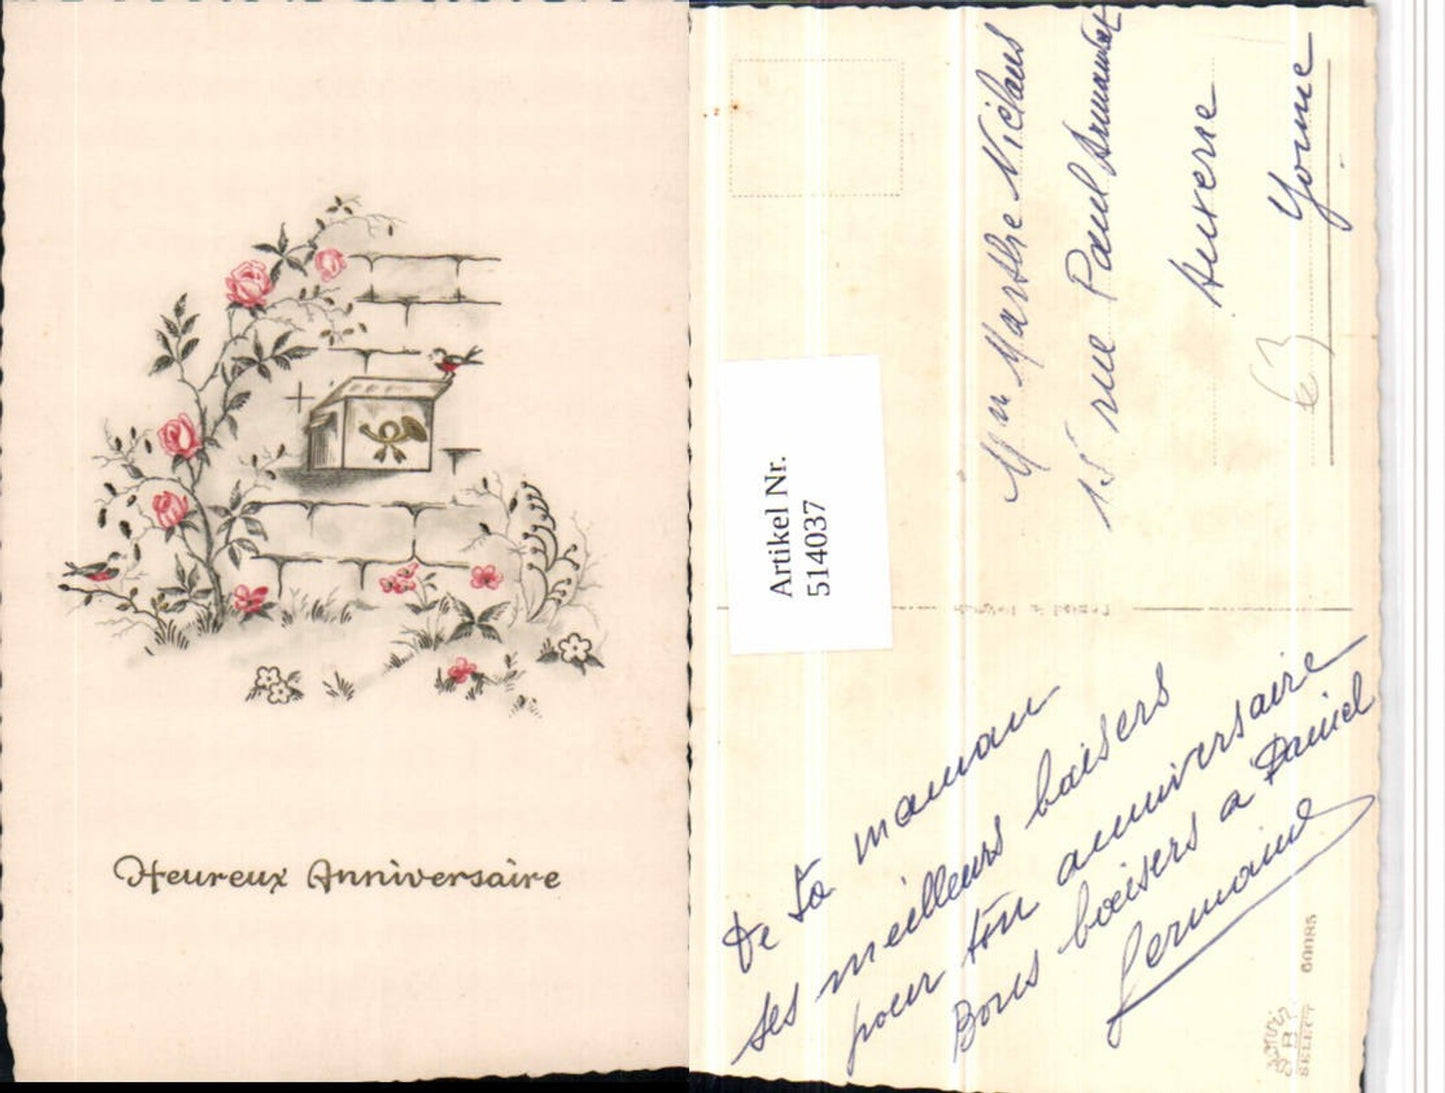 Heureux Anniversaire
Artikel Nr.
514037
Marthe
15 rue Paul
Auxerre
Yonne
63
De ta maman
ses meilleurs baisers
pour ton anniversaire
Bons baisers a Daniel
Germaine
SELECT
60085